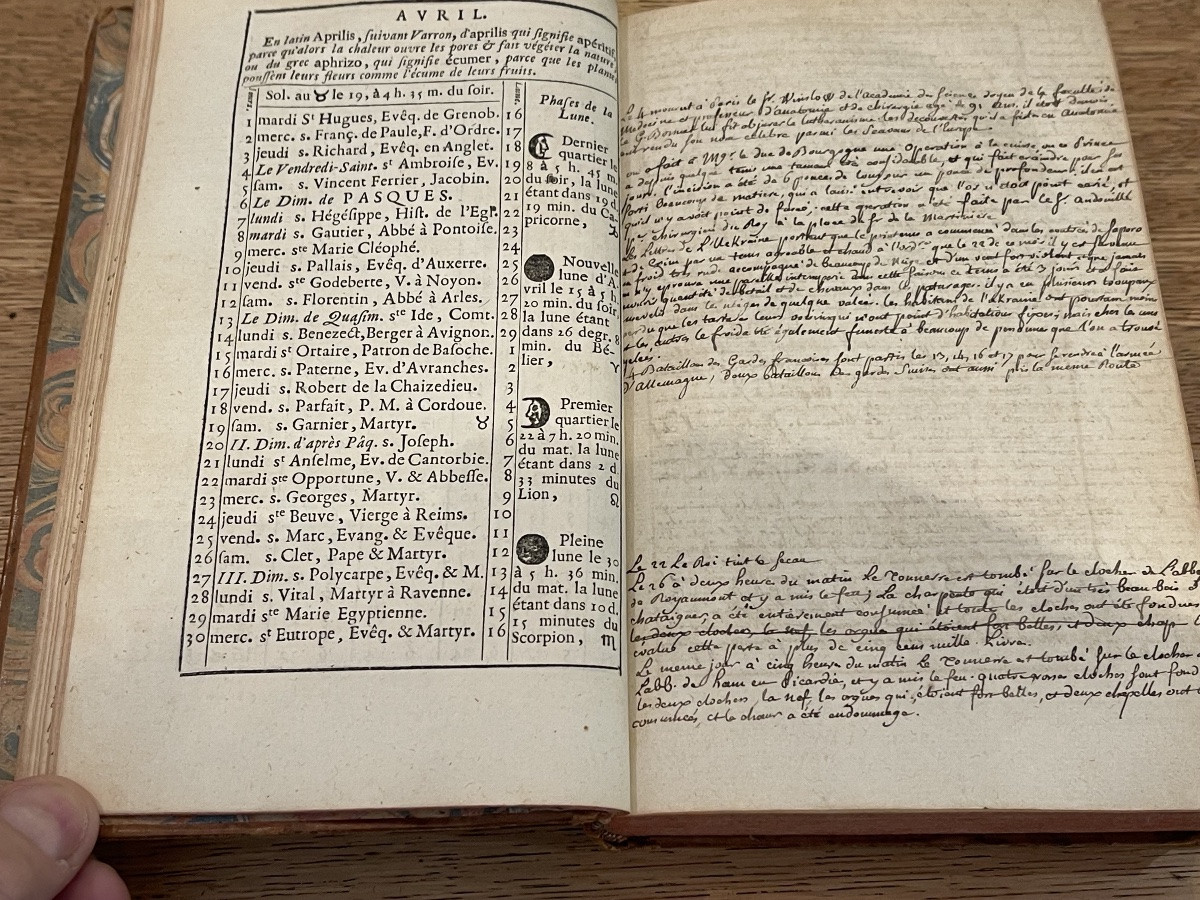 AVRIL.
En latin Aprilis, ſuivant Varron, d'aprilis qui ſignifie apéritif
parce qu'alors la chaleur ouvre les pores & fait végéter la nature
ou du grec aphrizo, qui ſignifie écumer, parce que les plantes
pouſſent leurs fleurs comme l'écume de leurs fruits.
Sol. au ♉ le 19, à 4 h. 35 m. du ſoir.
1 mardi St Hugues, Evêq. de Grenob. 16
2 merc. s. Franç. de Paule, F. d'Ordre. 17
3 jeudi s. Richard, Evêq. en Anglet. 18
4 Le Vendredi-Saint. st Ambroiſe, Ev. 19
5 ſam. s. Vincent Ferrier, Jacobin. 20
6 Le Dim. de PASQUES. 21
7 lundi s. Hégéſippe, Hiſt. de l'Egl. 22
8 mardi s. Gautier, Abbé à Pontoiſe. 23
9 merc. ste Marie Cléophé. 24
10 jeudi s. Pallais, Evêq. d'Auxerre. 25
11 vend. ste Godeberte, V. à Noyon. 26
12 ſam. s. Florentin, Abbé à Arles. 27
13 Le Dim. de Quaſim. ste Ide, Comt. 28
14 lundi s. Benezect, Berger à Avignon. 29
15 mardi st Ortaire, Patron de Baſoche. 1
16 merc. s. Paterne, Ev. d'Avranches. 2
17 jeudi s. Robert de la Chaizedieu. 3
18 vend. s. Parfait, P. M. à Cordoue. 4
19 ſam. s. Garnier, Martyr. ♉ 5
20 II. Dim. d'après Pâq. s. Joſeph. 6
21 lundi st Anſelme, Ev. de Cantorbie. 7
22 mardi ste Opportune, V. & Abbeſſe. 8
23 merc. s. Georges, Martyr. 9
24 jeudi ste Beuve, Vierge à Reims. 10
25 vend. s. Marc, Evang. & Evêque. 11
26 ſam. s. Clet, Pape & Martyr. 12
27 III. Dim. s. Polycarpe, Evêq. & M. 13
28 lundi s. Vital, Martyr à Ravenne. 14
29 mardi ste Marie Egyptienne. 15
30 merc. st Eutrope, Evêq. & Martyr. 16
Phaſes de la
Lune.
Dernier
quartier le
8 à 5 h. 45 m.
du ſoir, la lune
étant dans 19 d.
19 min. du Ca-
pricorne, ♑
Nouvelle
lune d'A-
vril le 15 à 5 h.
20 min. du ſoir,
la lune étant
dans 26 degr. 8
min. du Bé-
lier, ♈
Premier
quartier le
22 à 7 h. 20 min.
du mat. la lune
étant dans 2 d.
33 minutes du
Lion, ♌
Pleine
lune le 30
à 5 h. 36 min.
du mat. la lune
étant dans 10 d.
15 minutes du
Scorpion, ♏
Le 4 mourut à Paris le Sr. Winslow de l'academie des sciences doyen de la faculté de
Medecine et professeur d'anatomie et de chirurgie agé de 91 ans. il étoit danois
avoit rendu son nom celebre parmi les Scavans de l'Europe.
on a fait à Mgr. le duc de Bourgogne une operation à la cuisse, ou ce Prince
a depuis quelque tems une tumeur considerable, et qui fait craindre pour ses
jours. l'incision a été de 6 pouces de long sur un pouce de profondeur; il en est
sorti beaucoup de matiere, qui a laissé entrevoir que l'os n'étoit point carié, et
qu'il n'y avoit point de sinus, cette operation a été faite par le Sr andouillé
chirurgien du Roy à la place du Sr de la Martiniere
Les Lettres de l'Ukraine portent que le printems a commencé dans les contrées de
et de Crim par un tems agreable et chaud que le 22 de ce mois il y est survenu
un froid tres rude accompagné de beaucoup de Neige et d'un vent fort violent
quantité de betail et de chevaux dans les paturages. il y a eu plusieurs troupeaux
ensevelis dans les neiges de quelque valée. les habitans de l'ukraine ont pourtant moins
perdu que les tartares leurs voisins qui n'ont point d'habitations fixes; mais chez les uns
et les autres le froid a été également funeste à beaucoup de personnes que l'on a trouvé
gelées.
4 Bataillons des Gardes françoises sont partis les 13, 14, 16 et 17 pour se rendre à l'armée
d'allemagne, deux bataillons de gardes suisses ont aussi pris la meme Route
Le 22 Le Roi tint le sceau
Le 26 à deux heures du matin le tonnerre est tombé sur le clocher de l'abbaye
de Royaumont et y a mis le feu; la charpente qui étoit d'un tres beau bois de
chataigner, a été entierement consumée et toutes les cloches ont été fondues
les deux clochers, la nef, les orgues qui étoient fort belles, et deux chap
evalue cette perte à plus de cinq cens mille Livres.
Le meme jour à cinq heures du matin le tonnerre est tombé sur le clocher de
Labb. de ham en Picardie, et y a mis le feu. quatre grosses cloches sont fond
les deux clochers, la nef, les orgues qui étoient fort belles, et deux chapelles ont
consumés, et le chœur a été endommagé.